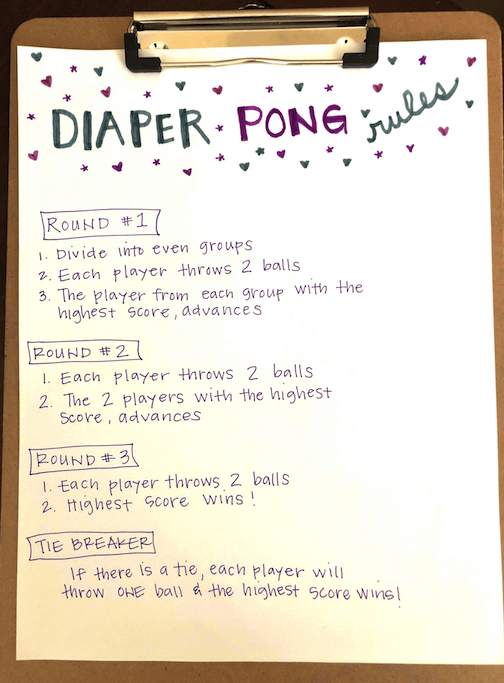 DIAPER PONG rules
ROUND #1
1. Divide into even groups
2. Each player throws 2 balls
3. The player from each group with the
highest score, advances
ROUND #2
1. Each player throws 2 balls
2. The 2 players with the highest
score, advances
ROUND #3
1. Each player throws 2 balls
2. Highest score wins!
TIE BREAKER
If there is a tie, each player will
throw ONE ball & the highest score wins!